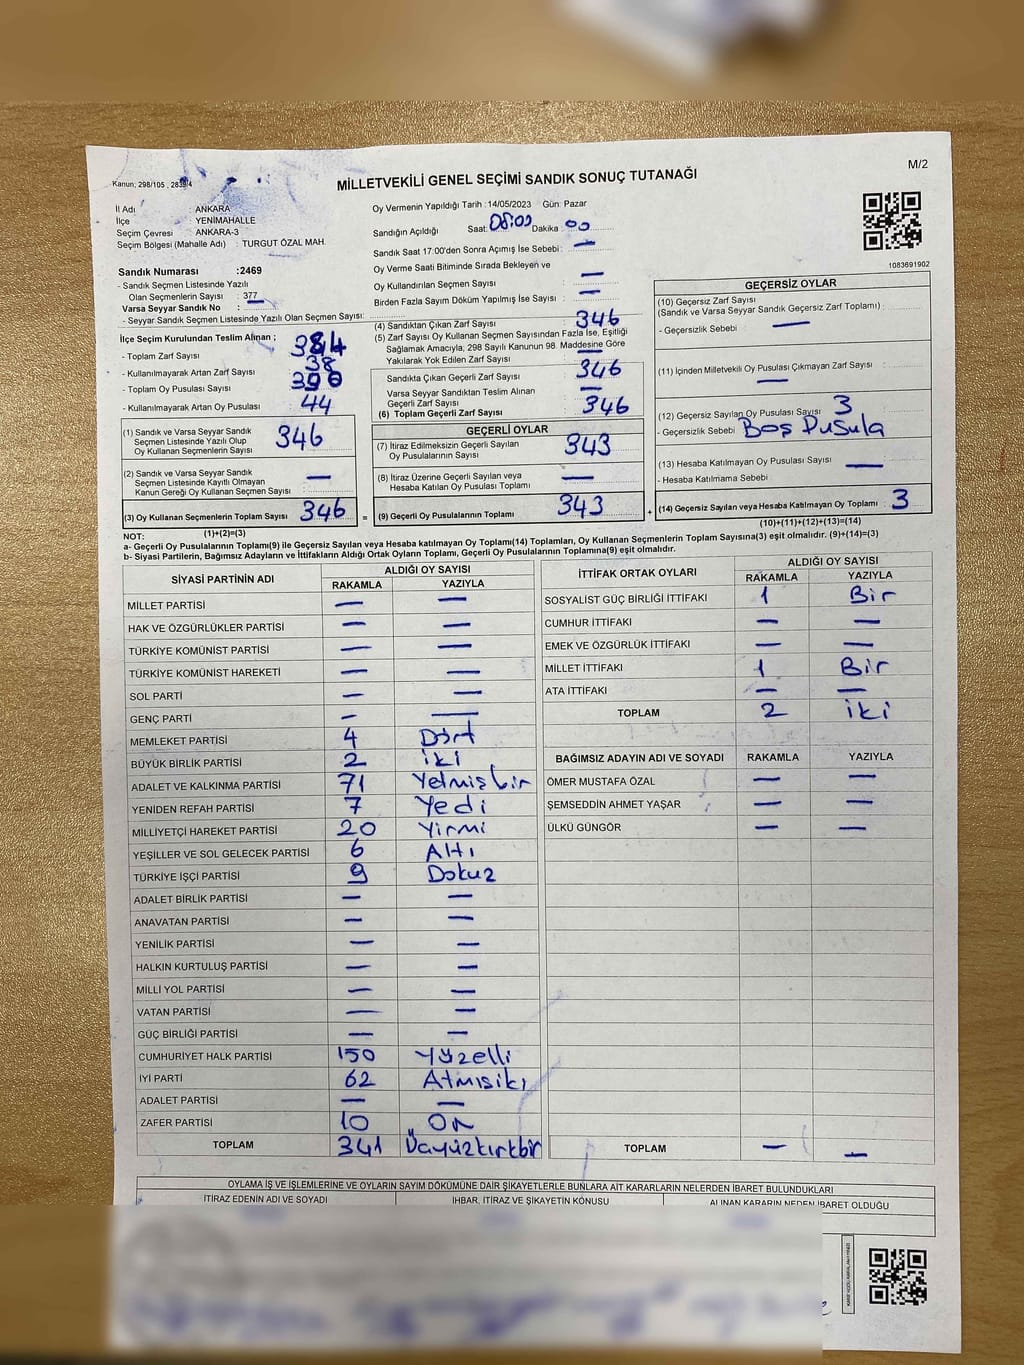 M/2
Kanun; 298/105 , 2839/4
MİLLETVEKİLİ GENEL SEÇİMİ SANDIK SONUÇ TUTANAĞI
İl Adı : ANKARA
İlçe : YENİMAHALLE
Seçim Çevresi : ANKARA-3
Seçim Bölgesi (Mahalle Adı) : TURGUT ÖZAL MAH.
Sandık Numarası :2469
- Sandık Seçmen Listesinde Yazılı
Olan Seçmenlerin Sayısı : 377
Varsa Seyyar Sandık No : —
- Seyyar Sandık Seçmen Listesinde Yazılı Olan Seçmen Sayısı:
Oy Vermenin Yapıldığı Tarih :14/05/2023 Gün: Pazar
Sandığın Açıldığı Saat: 08:00 Dakika : 00
Sandık Saat 17:00'den Sonra Açımış İse Sebebi : —
Oy Verme Saati Bitiminde Sırada Bekleyen ve
Oy Kullandırılan Seçmen Sayısı : —
Birden Fazla Sayım Döküm Yapılmış İse Sayısı : —
1083691902
İlçe Seçim Kurulundan Teslim Alınan ;
- Toplam Zarf Sayısı : 384
- Kullanılmayarak Artan Zarf Sayısı : 38
- Toplam Oy Pusulası Sayısı : 390
- Kullanılmayarak Artan Oy Pusulası : 44
(1) Sandık ve Varsa Seyyar Sandık
Seçmen Listesinde Yazılı Olup
Oy Kullanan Seçmenlerin Sayısı : 346
(2) Sandık ve Varsa Seyyar Sandık
Seçmen Listesinde Kayıtlı Olmayan
Kanun Gereği Oy Kullanan Seçmen Sayısı : —
(3) Oy Kullanan Seçmenlerin Toplam Sayısı : 346
(1)+(2)=(3)
(4) Sandıktan Çıkan Zarf Sayısı : 346
(5) Zarf Sayısı Oy Kullanan Seçmen Sayısından Fazla İse, Eşitliği
Sağlamak Amacıyla, 298 Sayılı Kanunun 98. Maddesine Göre
Yakılarak Yok Edilen Zarf Sayısı : —
Sandıkta Çıkan Geçerli Zarf Sayısı : 346
Varsa Seyyar Sandıktan Teslim Alınan
Geçerli Zarf Sayısı : —
(6) Toplam Geçerli Zarf Sayısı : 346
GEÇERLİ OYLAR
(7) İtiraz Edilmeksizin Geçerli Sayılan
Oy Pusulalarının Sayısı : 343
(8) İtiraz Üzerine Geçerli Sayılan veya
Hesaba Katılan Oy Pusulası Toplamı : —
= (9) Geçerli Oy Pusulalarının Toplamı : 343 +
GEÇERSİZ OYLAR
(10) Geçersiz Zarf Sayısı
(Sandık ve Varsa Seyyar Sandık Geçersiz Zarf Toplamı) :
- Geçersizlik Sebebi : —
(11) İçinden Milletvekili Oy Pusulası Çıkmayan Zarf Sayısı :
—
(12) Geçersiz Sayılan Oy Pusulası Sayısı : 3
- Geçersizlik Sebebi : Boş Pusula
(13) Hesaba Katılmayan Oy Pusulası Sayısı : —
- Hesaba Katılmama Sebebi :
(14) Geçersiz Sayılan veya Hesaba Katılmayan Oy Toplamı : 3
(10)+(11)+(12)+(13)=(14)
NOT:
a- Geçerli Oy Pusulalarının Toplamı(9) ile Geçersiz Sayılan veya Hesaba katılmayan Oy Toplamı(14) Toplamları, Oy Kullanan Seçmenlerin Toplam Sayısına(3) eşit olmalıdır. (9)+(14)=(3)
b- Siyasi Partilerin, Bağımsız Adayların ve İttifakların Aldığı Ortak Oyların Toplamı, Geçerli Oy Pusulalarının Toplamına(9) eşit olmalıdır.
SİYASİ PARTİNİN ADI ALDIĞI OY SAYISI
RAKAMLA YAZIYLA
MİLLET PARTİSİ — —
HAK VE ÖZGÜRLÜKLER PARTİSİ — —
TÜRKİYE KOMÜNİST PARTİSİ — —
TÜRKİYE KOMÜNİST HAREKETİ — —
SOL PARTİ — —
GENÇ PARTİ — —
MEMLEKET PARTİSİ 4 Dört
BÜYÜK BİRLİK PARTİSİ 2 iki
ADALET VE KALKINMA PARTİSİ 71 Yetmişbir
YENİDEN REFAH PARTİSİ 7 Yedi
MİLLİYETÇİ HAREKET PARTİSİ 20 Yirmi
YEŞİLLER VE SOL GELECEK PARTİSİ 6 Altı
TÜRKİYE İŞÇİ PARTİSİ 9 Dokuz
ADALET BİRLİK PARTİSİ — —
ANAVATAN PARTİSİ — —
YENİLİK PARTİSİ — —
HALKIN KURTULUŞ PARTİSİ — —
MİLLİ YOL PARTİSİ — —
VATAN PARTİSİ — —
GÜÇ BİRLİĞİ PARTİSİ — —
CUMHURİYET HALK PARTİSİ 150 Yüzelli
İYİ PARTİ 62 Atmışiki
ADALET PARTİSİ — —
ZAFER PARTİSİ 10 On
TOPLAM 341 Üçyüzkırkbir
İTTİFAK ORTAK OYLARI ALDIĞI OY SAYISI
RAKAMLA YAZIYLA
SOSYALİST GÜÇ BİRLİĞİ İTTİFAKI 1 Bir
CUMHUR İTTİFAKI — —
EMEK VE ÖZGÜRLÜK İTTİFAKI — —
MİLLET İTTİFAKI 1 Bir
ATA İTTİFAKI — —
TOPLAM 2 iki
BAĞIMSIZ ADAYIN ADI VE SOYADI RAKAMLA YAZIYLA
ÖMER MUSTAFA ÖZAL — —
ŞEMSEDDİN AHMET YAŞAR — —
ÜLKÜ GÜNGÖR — —
TOPLAM — —
OYLAMA İŞ VE İŞLEMLERİNE VE OYLARIN SAYIM DÖKÜMÜNE DAİR ŞİKAYETLERLE BUNLARA AİT KARARLARIN NELERDEN İBARET BULUNDUKLARI
İTİRAZ EDENİN ADI VE SOYADI İHBAR, İTİRAZ VE ŞİKAYETİN KONUSU ALINAN KARARIN NEDEN İBARET OLDUĞU